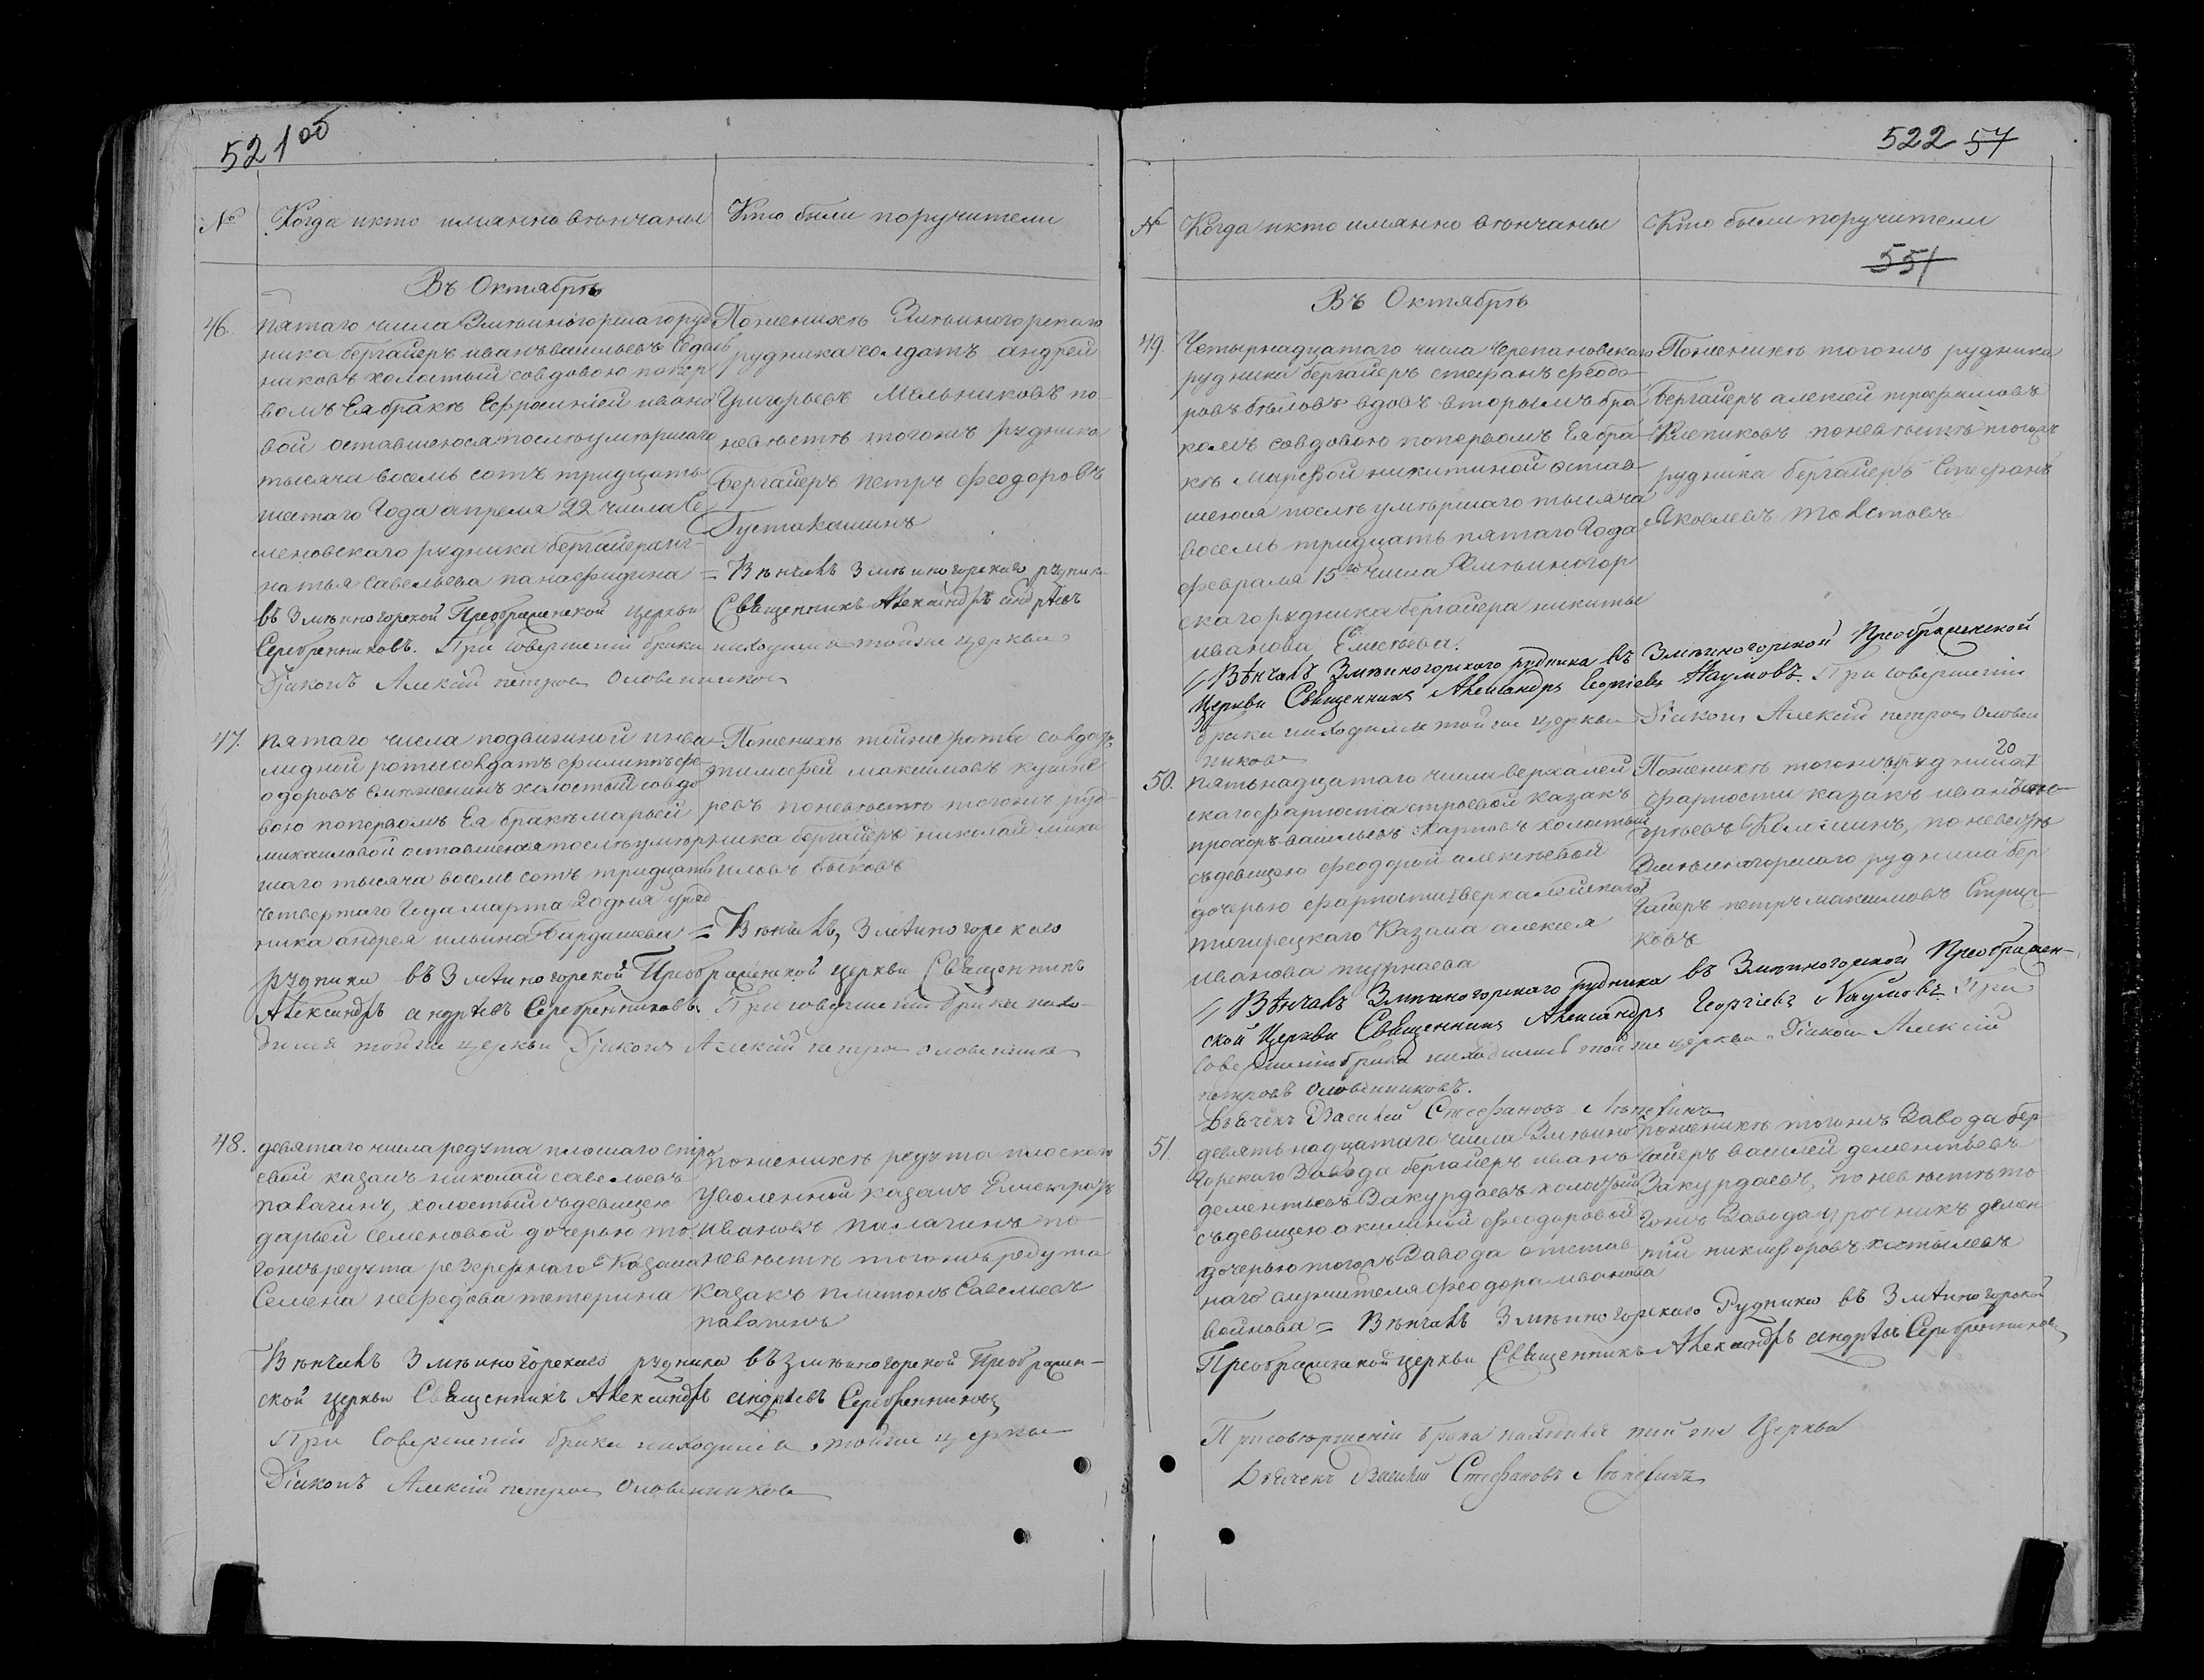 521 об
№ Когда икто имянно вѣнчаны
Кто были поручители
Въ Октябрѣ
46. пятаго числа Змѣиногорскаго руд
ника бергайеръ иванъ васильевъ
никовъ холостый совдовою попер
вомъ Ея бракѣ Ефросиніей ивано
вой оставшеюся послѣ умѣршаго
тысяча восемь сотъ тридцать
шестаго Года апреля 22 числа Се
меновскаго рудника бергайера иг-
натья савельева панафидина =
въ Змѣиногорской Преображенской церкви
Поженихѣ Змѣиногорскаго
рудника солдатъ андрей
Григорьевъ Мельниковъ по
невѣстѣ тогожъ рудника
бергайеръ петръ феодоровъ
Густокашинъ
= Вѣнчалъ Змѣиногорскаго рудник
Священникъ Александръ андрѣевъ
Серебренниковъ. При совершеніи брака находился тойже церкви
Діаконъ Алексій петровъ Оловенниковъ
47. пятаго числа подвижной инва
лидной роты солдатъ филиппъ фе-
одоровъ холостый совдо
вою попервомъ Ея бракѣ марьей
михаиловой оставшеюся послѣ умѣр
шаго тысяча восемь сотъ тридцать
четвертаго Года марта 20 дня уряд
ника андрея ильина Бардашева
Поженихѣ тойже роты солдатъ
тимофей максимовъ
ревъ поневѣстѣ тогожъ руд-
ника бергайеръ николай михаи
иловъ быковъ
= Вѣнчалъ, Змѣиногорскаго
рудника въ Змѣиногорской Преображенской церкви Священникъ
Александръ андрѣевъ Серебренниковъ. При совершеніи брака нахо-
дился тойже церкви Діаконъ Алексій петровъ оловенниковъ
48. девятаго числа редута плоскаго стро
евой казакъ николай савельевъ
палагинъ, холостый съдевицею
дарьей семеновой дочерью то
гожъ редута резервнаго Казака
Семена нефедова тетерина
поженихѣ редута плоскаго
уволенной казакъ Елистратъ
ивановъ палагинъ по
невѣстѣ тогожъ редута
казакъ платонъ савельевъ
палагинъ
Вѣнчалъ Змѣиногорскаго рудника въ змѣиногорской Преображен-
ской церкви Священникъ Александръ андрѣевъ Серебренниковъ
При совершеніи брака находился тойже церкви
Діаконъ Алексій петровъ Оловенниковъ
522 57
№ Когда икто имянно вѣнчаны
Кто были поручители
551
Въ Октябрѣ
49. Четырнадцатаго числа Черепановскаго
рудника бергайеръ стефанъ феодо-
ровъ бѣловъ вдовъ вторымъ бра
комъ совдовою попервомъ Ея бра
кѣ марфой никитиной остав
шеюся послѣ умѣршаго тысяча
восемь тридцать пятаго Года
февраля 15го числа Змѣиногор
скаго рудника бергайера никиты
иванова Елисѣева.
Поженихѣ тогожъ рудника
бергайеръ алексей трофимовъ
Клепиковъ поневѣстѣ тогожъ
рудника бергайеръ Стефанъ
Яковлевъ толстовъ
Вѣнчалъ Змѣиногорскаго рудника въ Змѣиногорской Преображенской
Церкви Священникъ Александръ Георгіевъ Наумовъ. При совершеніи
брака находился той же церкви Діаконъ Алексій петровъ Оловен
никовъ
50. пятьнадцатаго числа верхалей
скаго фарпоста строевой казакъ
прохоръ васильевъ Карповъ холостый
съдевицею феодорой алексѣевой
дочерью фарпоста верхалейскаго
тигирецкаго Казака алексея
иванова
Поженихѣ тогожъ
фарпоста казакъ иванъ
по невѣстѣ
Змѣиногорскаго рудника бер
гайеръ петръ максимовъ
ковъ
Вѣнчалъ Змѣиногорскаго рудника въ Змѣиногорской Преображен-
ской Церкви Священникъ Александръ Георгіевъ Наумовъ. При
совершеніи брака находились той же церкви Діаконъ Алексій
петровъ оловенниковъ.
Дьячекъ Василий Стефановъ
51. девятьнадцатаго числа Змѣино
горскаго Завода бергайеръ иванъ
дементьевъ Закурдаевъ холостый
съдевицею акилиной феодоровой
дочерью тогожъ Завода отстав
наго служителя феодора иванова
войнова =
поженихѣ тогожъ Завода бер-
гайеръ василей дементьевъ
Закурдаевъ, по невѣстѣ то
гожъ Завода урочникъ демен
тій никифоровъ костылевъ
Вѣнчалъ Змѣиногорскаго Рудника въ Змѣиногорской
Преображенской церкви Священникъ Александръ андрѣевъ Серебренниковъ
При совершеніи брака находился той же Церкви
Дьячекъ Василий Стефановъ